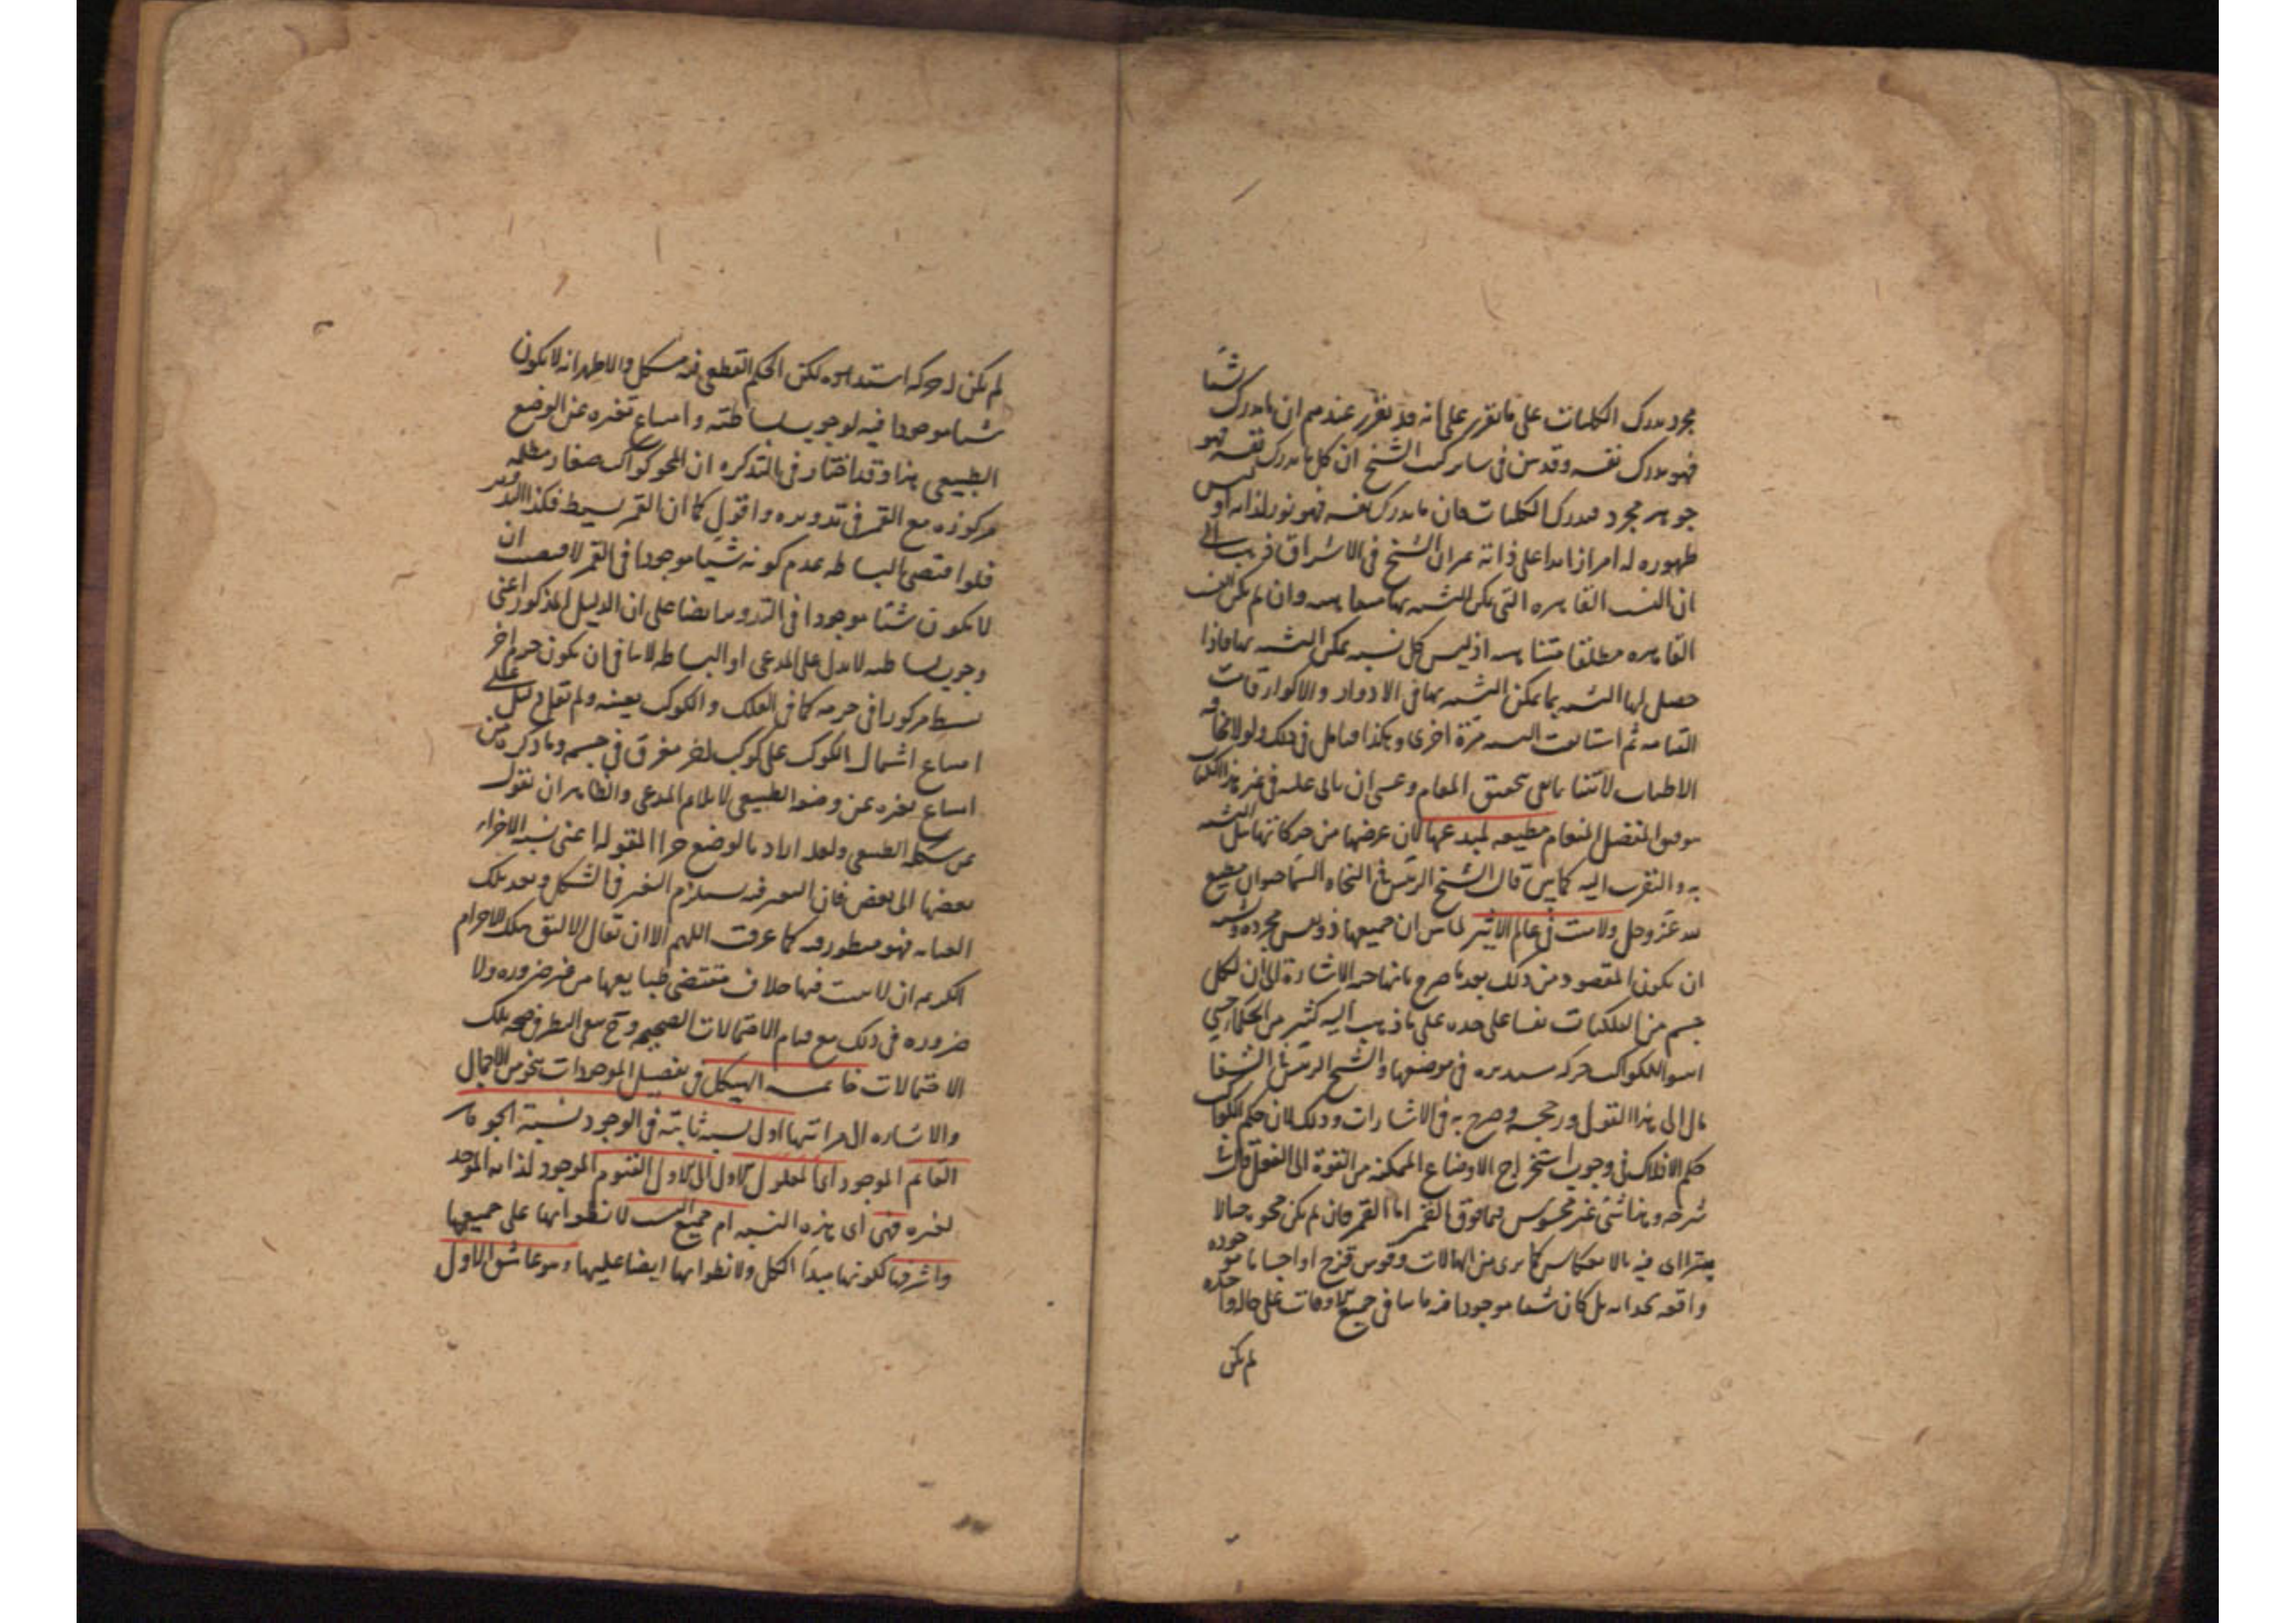 مجرد مدرك الكليات على ما تقرر على انه قد تقرر عندهم ان ما يدرك شيئا
فهو مدرك نفسه وقد بين في ساير كتب الشيخ ان كل ما يدرك نفسه فهو
جوهر مجرد مدرك الكليات فان ما يدرك نفسه فهو نور لذاته وليس
ظهوره له امرا زايدا على ذاته الشيخ في الاشراق ذهب الى
ان النسب القاهره التي يمكن التشبه بها متناهيه وان لم يكن النسب
القاهره مطلقا متناهيه اذ ليس كل نسبه يمكن التشبه بها فاذا
حصل لها التشبه بما يمكن التشبه بها في الادوار والاكوار قامت
القيامه ثم استانفت التشبه مرة اخرى وهكذا فتامل في ذلك ولولا مخافه
الاطناب لاتينا بما في تحقيق المقام وعسى ان ياتي عليه في غير هذا الكتاب
المتفضل المنعام مطيعه لمبدعها لان غرضها من حركاتها نيل التشبه
به والتقرب اليه كما بين قال الشيخ الرئيس في النجاه السما حيوان مطيع
لله عز وجل ولا ميت في عالم الاثير لما بين ان جميعها ذو نفس مجرده ويشبه
ان يكون المقصود من ذلك بعد ما صرح الاشارة الى ان لكل
جسم من الفلكيات نفسا على حده على ما ذهب اليه كثير من الحكماء حتى
اثبتوا للكواكب حركه مستديره في موضعها والشيخ الرئيس في الشفا
مال الى هذا القول ورجحه وصرح به في الاشارات وذلك لان حكم الكواكب
حكم الافلاك في وجوب استخراج الاوضاع الممكنه من القوة الى الفعل قال في
شرحه وهذا شئ غير محسوس فيما فوق القمر اما القمر فان لم يكن محوه خيالا
يتراءى فيه بالانعكاس كما يرى من الهالات وقوس قزح او اجساما موجوده
واقعه بل كان شيئا موجودا فيه ثابتا في جميع الاوقات على حاله واحده
لم يكن
لم يكن له حركه استداره لكن الحكم القطعي فيه مشكل والاظهر انه لا يكون
شيئا موجودا فيه لوجوب بساطته وامتناع تغيره عن الوضع
الطبيعي هذا وقد اختار في التذكره ان المحو كواكب صغار مظلمه
مركوزه مع القمر في تدويره واقول كما ان القمر بسيط فكذا التدوير
فلو اقتضى البساطه عدم كونه شيئا موجودا في القمر لاقتضت ان
لا يكون شيئا موجودا في التدوير ايضا على ان الدليل المذكور اعني
وجوب بساطته لا يدل على المدعى اذ البساطه لا ينافي ان يكون جرم اخر
بسيط مركوزا في جرمه كما في الفلك والكوكب بعينه ولم يقم دليل على
امتناع اشتمال الكوكب على كوكب اخر مغرق في جسمه وما ذكره من
امتناع تغيره عن وضعه الطبيعي لا يلائم المدعى والظاهر ان يقول
عن شكله الطبيعي ولعله اراد بالوضع جزء المقوله اعني نسبة الاجزاء
بعضها الى بعض فان التغير فيه يستلزم التغير في الشكل وبعد تلك
العنايه فهو منظور فيه كما عرفت اللهم الا ان يقال الاليق بتلك الاجرام
الكريمه ان لا يثبت فيها خلاف مقتضى طبايعها من غير ضروره ولا
ضروره في ذلك مع قيام الاحتمالات الصحيحه وح بقي النظر في صحه تلك
الاحتمالات خاتمه الهيكل في تفصيل الموجودات بنحو من الاجمال
والاشاره الى مراتبها اول نسبه ثابتة في الوجود نسبة الجوهر
القائم الموجود اي المعلول الاول الى الاول القيوم الموجود لذاته الموجد
لغيره فهي اي هذه النسبه ام جميع النسب لانطوائها على جميعها
واشرفها لكونها مبدأ الكل ولانطوائها ايضا عليها وهو عاشق الاول